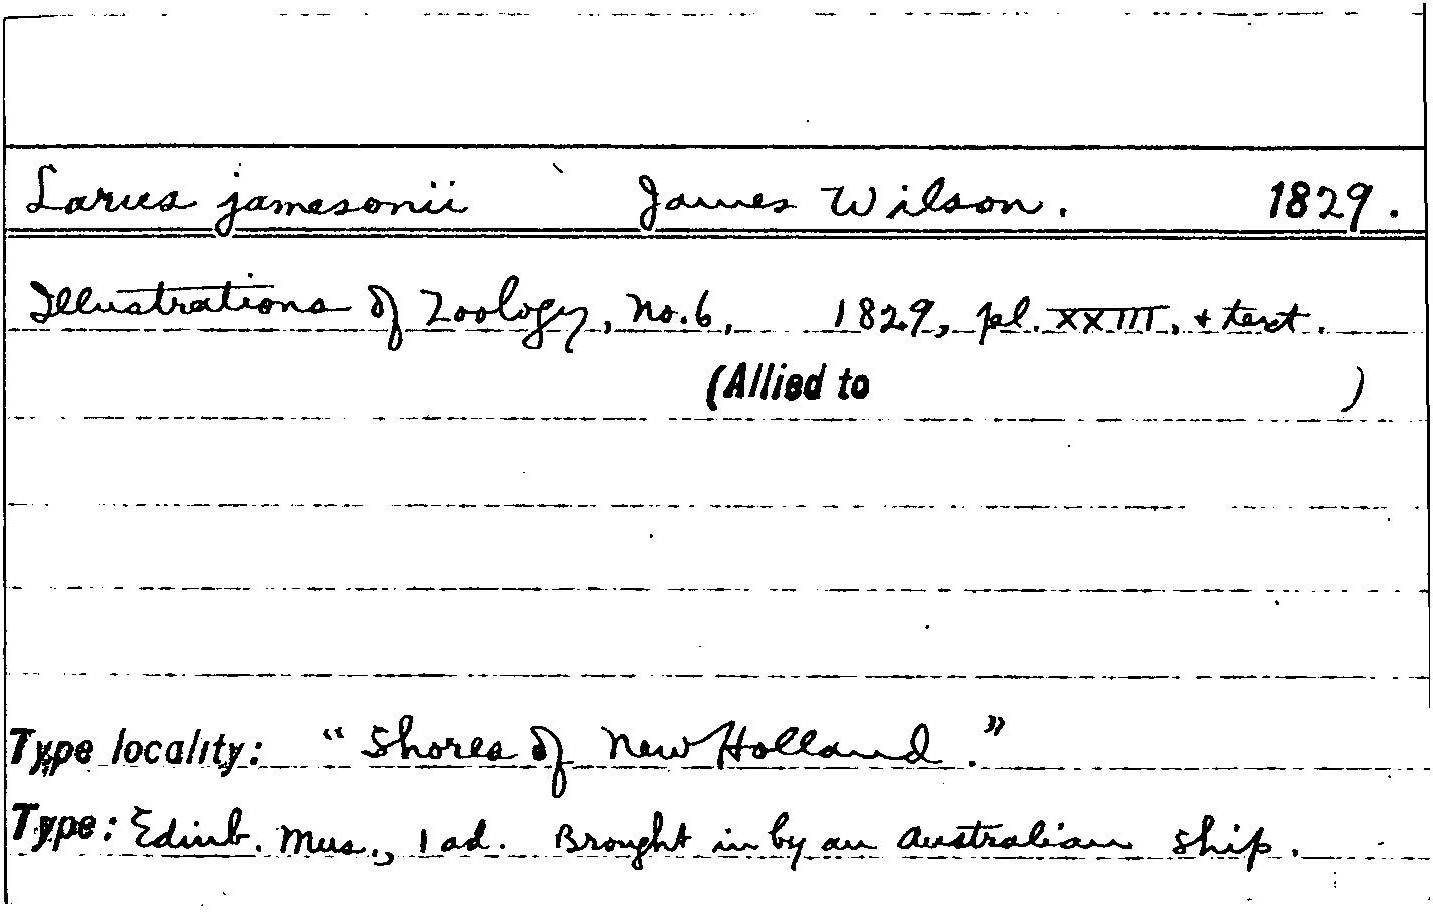 Larus jamesonii James Wilson. 1829.
Illustrations of Zoology, No. 6, 1829, pl. XXIII, + text.
(Allied to )
Type locality: "Shores of New Holland."
Type: Edinb. Mus., 1 ad. Brought in by an Australian ship.